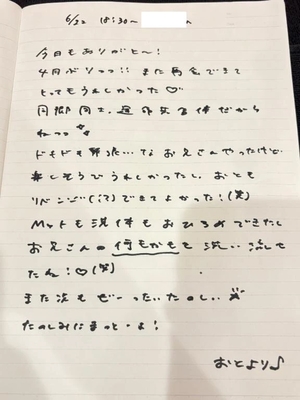 6/22 18:30〜 へ
今日もありがと〜！
4ヶ月ぶりっっ!! また再会できて
とってもうれしかった♡
同郷同士、遠距離 体だから
ねっっ
ドキドキ 緊張…な お兄さんやったけど
楽しそうでうれしかったし、おとも
リベンジ(i?)できてよかった！(笑)
Mットも洗体もおひろめできたし
お兄さんの何もかもを洗い流せ
たね！♡(笑)
また次もぜーったいたのしい
たのしみにまっと〜よ！
おとより♪